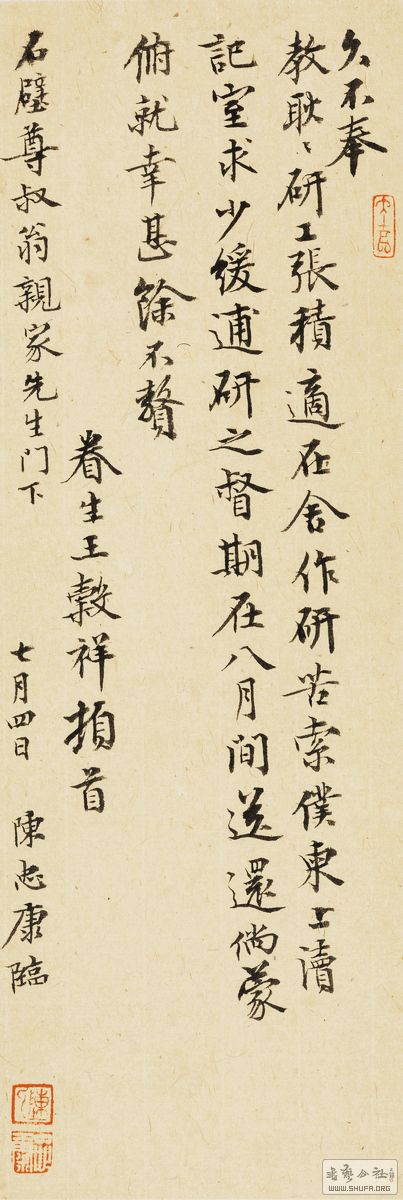 久不奉
教耿〻研工張積適在舍作研苦索僕柬上瀆
記室求少緩逋研之督期在八月間送還倘蒙
俯就幸甚餘不贅
眷生王穀祥頓首
石壁尊叔翁親家先生门下
七月四日 陳忠康臨
書法公社
WWW.SHUFA.ORG